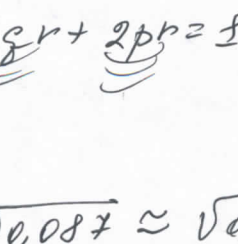 qr + 2pr = 1
√0,087 ≈ √